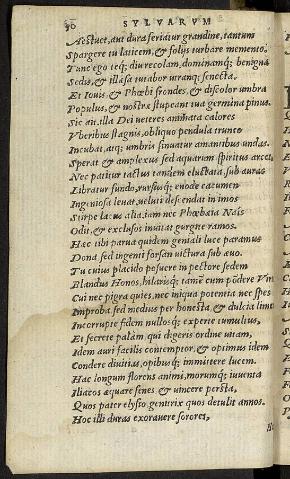 50 SYLVARVM
Aestuet, aut dura feriatur grandine, tantum
Spargere tu laticem, & folijs turbare memento.
Tunc ego teq; diu recolam, dominamq; benigna
Sedis, & illaesa tutabor utranq; senecta.
Et Iouis, & Phoebi frondes, & discolor umbra
Populus, & nostrae stupeant tua germina pinus.
Sic ait. illa Dei ueteres animata calores
Vberibus stagnis, obliquo pendula trunco
Incubat, atq; umbris scrutatur amantibus undas.
Sperat & amplexus sed aquarum spiritus arcet,
Nec patitur tactus tandem eluctata sub auras
Libratur fundo, rursusq; enode cacumen
Ingeniosa leuat, ueluti descendat in imos
Stirpe lacus alia, iam nec Phoebeia Naïs
Odit, & exclusos inuitat gurgite ramos.
Haec tibi parua quidem genitali luce paramus
Dona sed ingenti forsan uictura sub aeuo.
Tu cuius placido posuere in pectore sedem
Blandus Honos, hilarisq; tamē cum pōdere Vir
Cui nec pigra quies, nec iniqua potentia nec spes
Improba, sed medius per honesta, & dulcia limes
Incorrupte fidem nullosq; experte tumultus,
Et secrete palàm, qui digeris ordine uitam,
Idem auri facilis contemptor, & optimus idem
Condere diuitias, opibusq; immittere lucem.
Hac longum florens animi, morumq; iuuenta
Iliacos aequare senes & uincere persta,
Quos pater elysio genitrix quos detulit annos.
Hoc illi duras exorauere sorores,